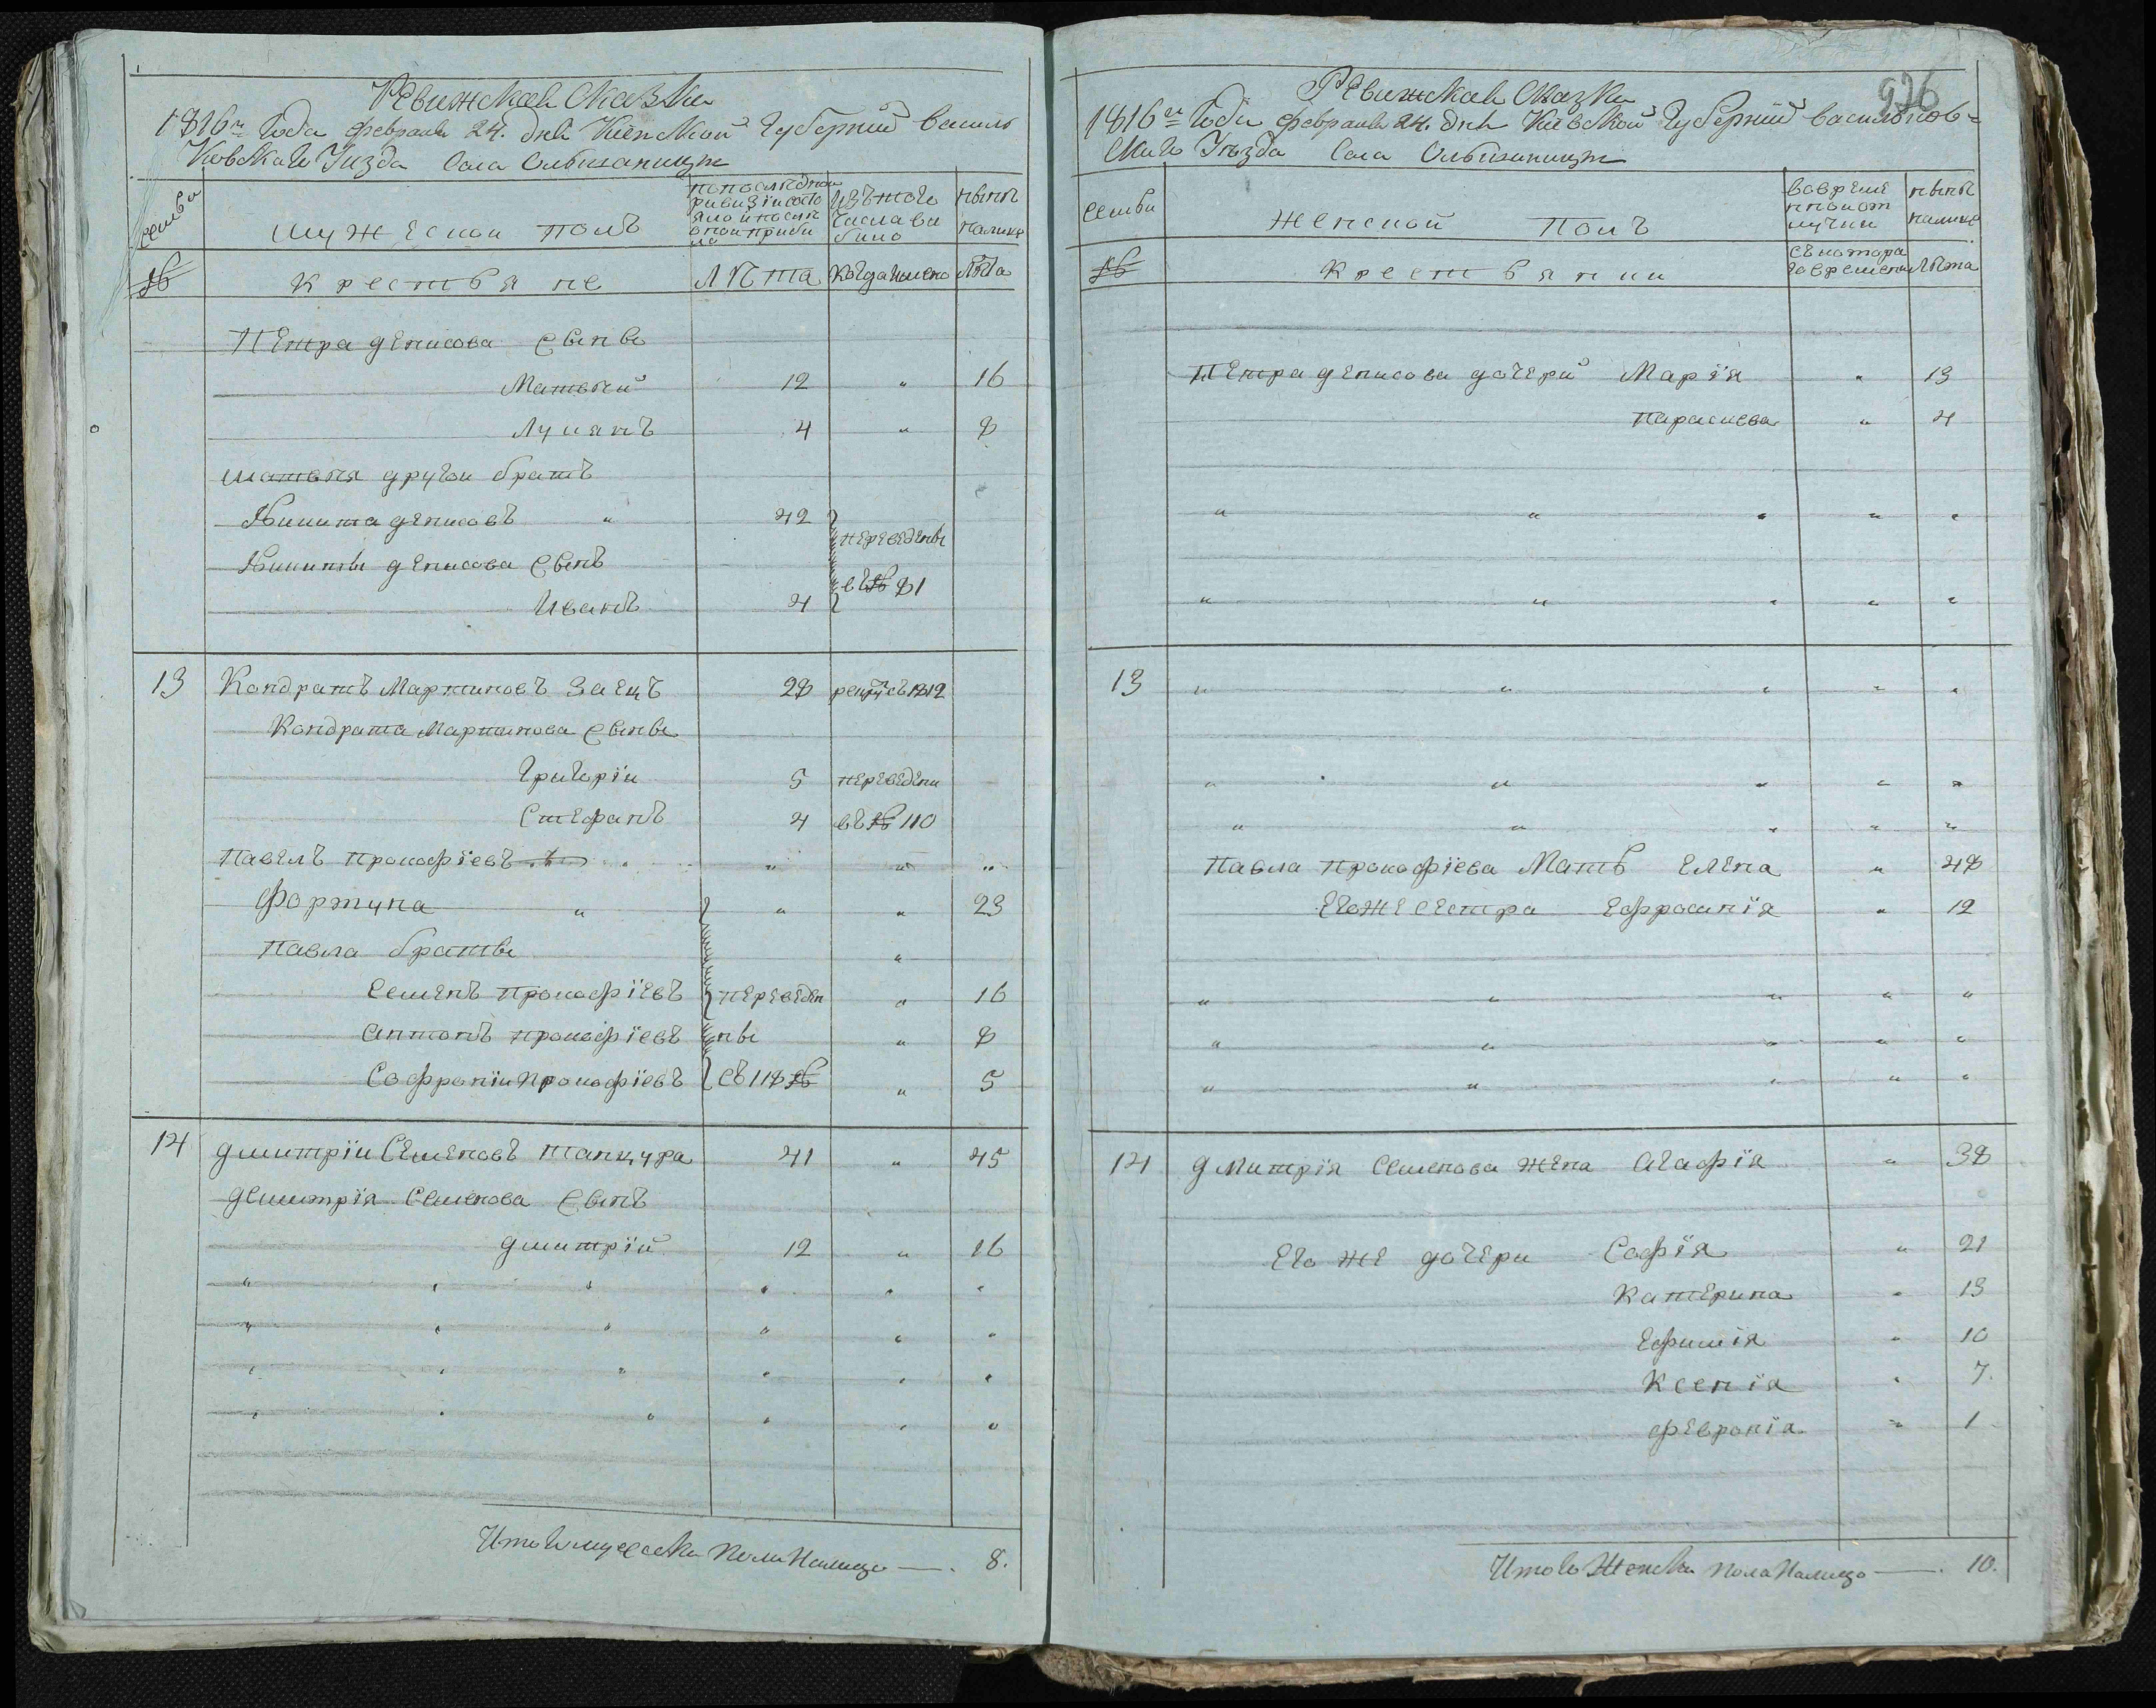 Ревижская Сказка
1816го Года февраля 24. дня Киевской Губернии василь
Ковскаго Уизда Села Ольшаницы
семьи
мужескои полъ
по последнои
ривизии состо
яло и после
онои прибы
ло
Изъ того
Числа вы
было
нынѣ
налицо
№
Крестьяне
Лѣта
Когда имено
Лѣта
Петра денисова сыны
Матвѣй 12 " 16
Лукянъ 4 " 8
матвѣя другои братъ
Никита денисовъ " 42 переведены
Никиты денисова сынъ въ № 81
Иванъ 4
13 Кондратъ Мартиновъ Заецъ 28 рекрутъ 1812
Кондрата Мартинова сыны
Григорїи 5 переведени
Стефанъ 4 въ № 110
Павелъ Прокофїевъ " " "
Фортуна " " " 23
Павла братьи "
Семенъ Прокофїевъ переведен " 16
Антонъ прокофїевъ ны " 8
Софронїи Прокофїевъ съ 118 № " 5
14 дмитрїи Семеновъ танцура 41 " 45
дмитрїя Семенова сынъ
дмитрїй 12 " 16
Итого мужеска Пола Налицо — 8.
926
Ревижская Сказка
1816го Года февраля 24. дня Киевской Губернии василиков-
скаго Уѣзда Села Ольшаницы
семьи
женской Полъ
вовреме
нной от
лучки
нынѣ
налицо
№
Крестьянки
съкотора
говремени
Лѣта
Петра денисова дочери Марїя " 13
Параскева " 4
" " " " "
" " " " "
13 " " " " "
" " " " "
" " " " "
Павла Прокофїева Мать Елена " 48
Егоже сестра Ефросинїя " 12
" " " " "
" " " " "
" " " " "
14 дмитрїя Семенова жена Агафїя " 38
Его же дочери Софїя " 21
Катерина " 13
Ефимїя " 10
Ксенїя " 7.
февронїя " 1
Итого Женска Пола Налицо — 10.